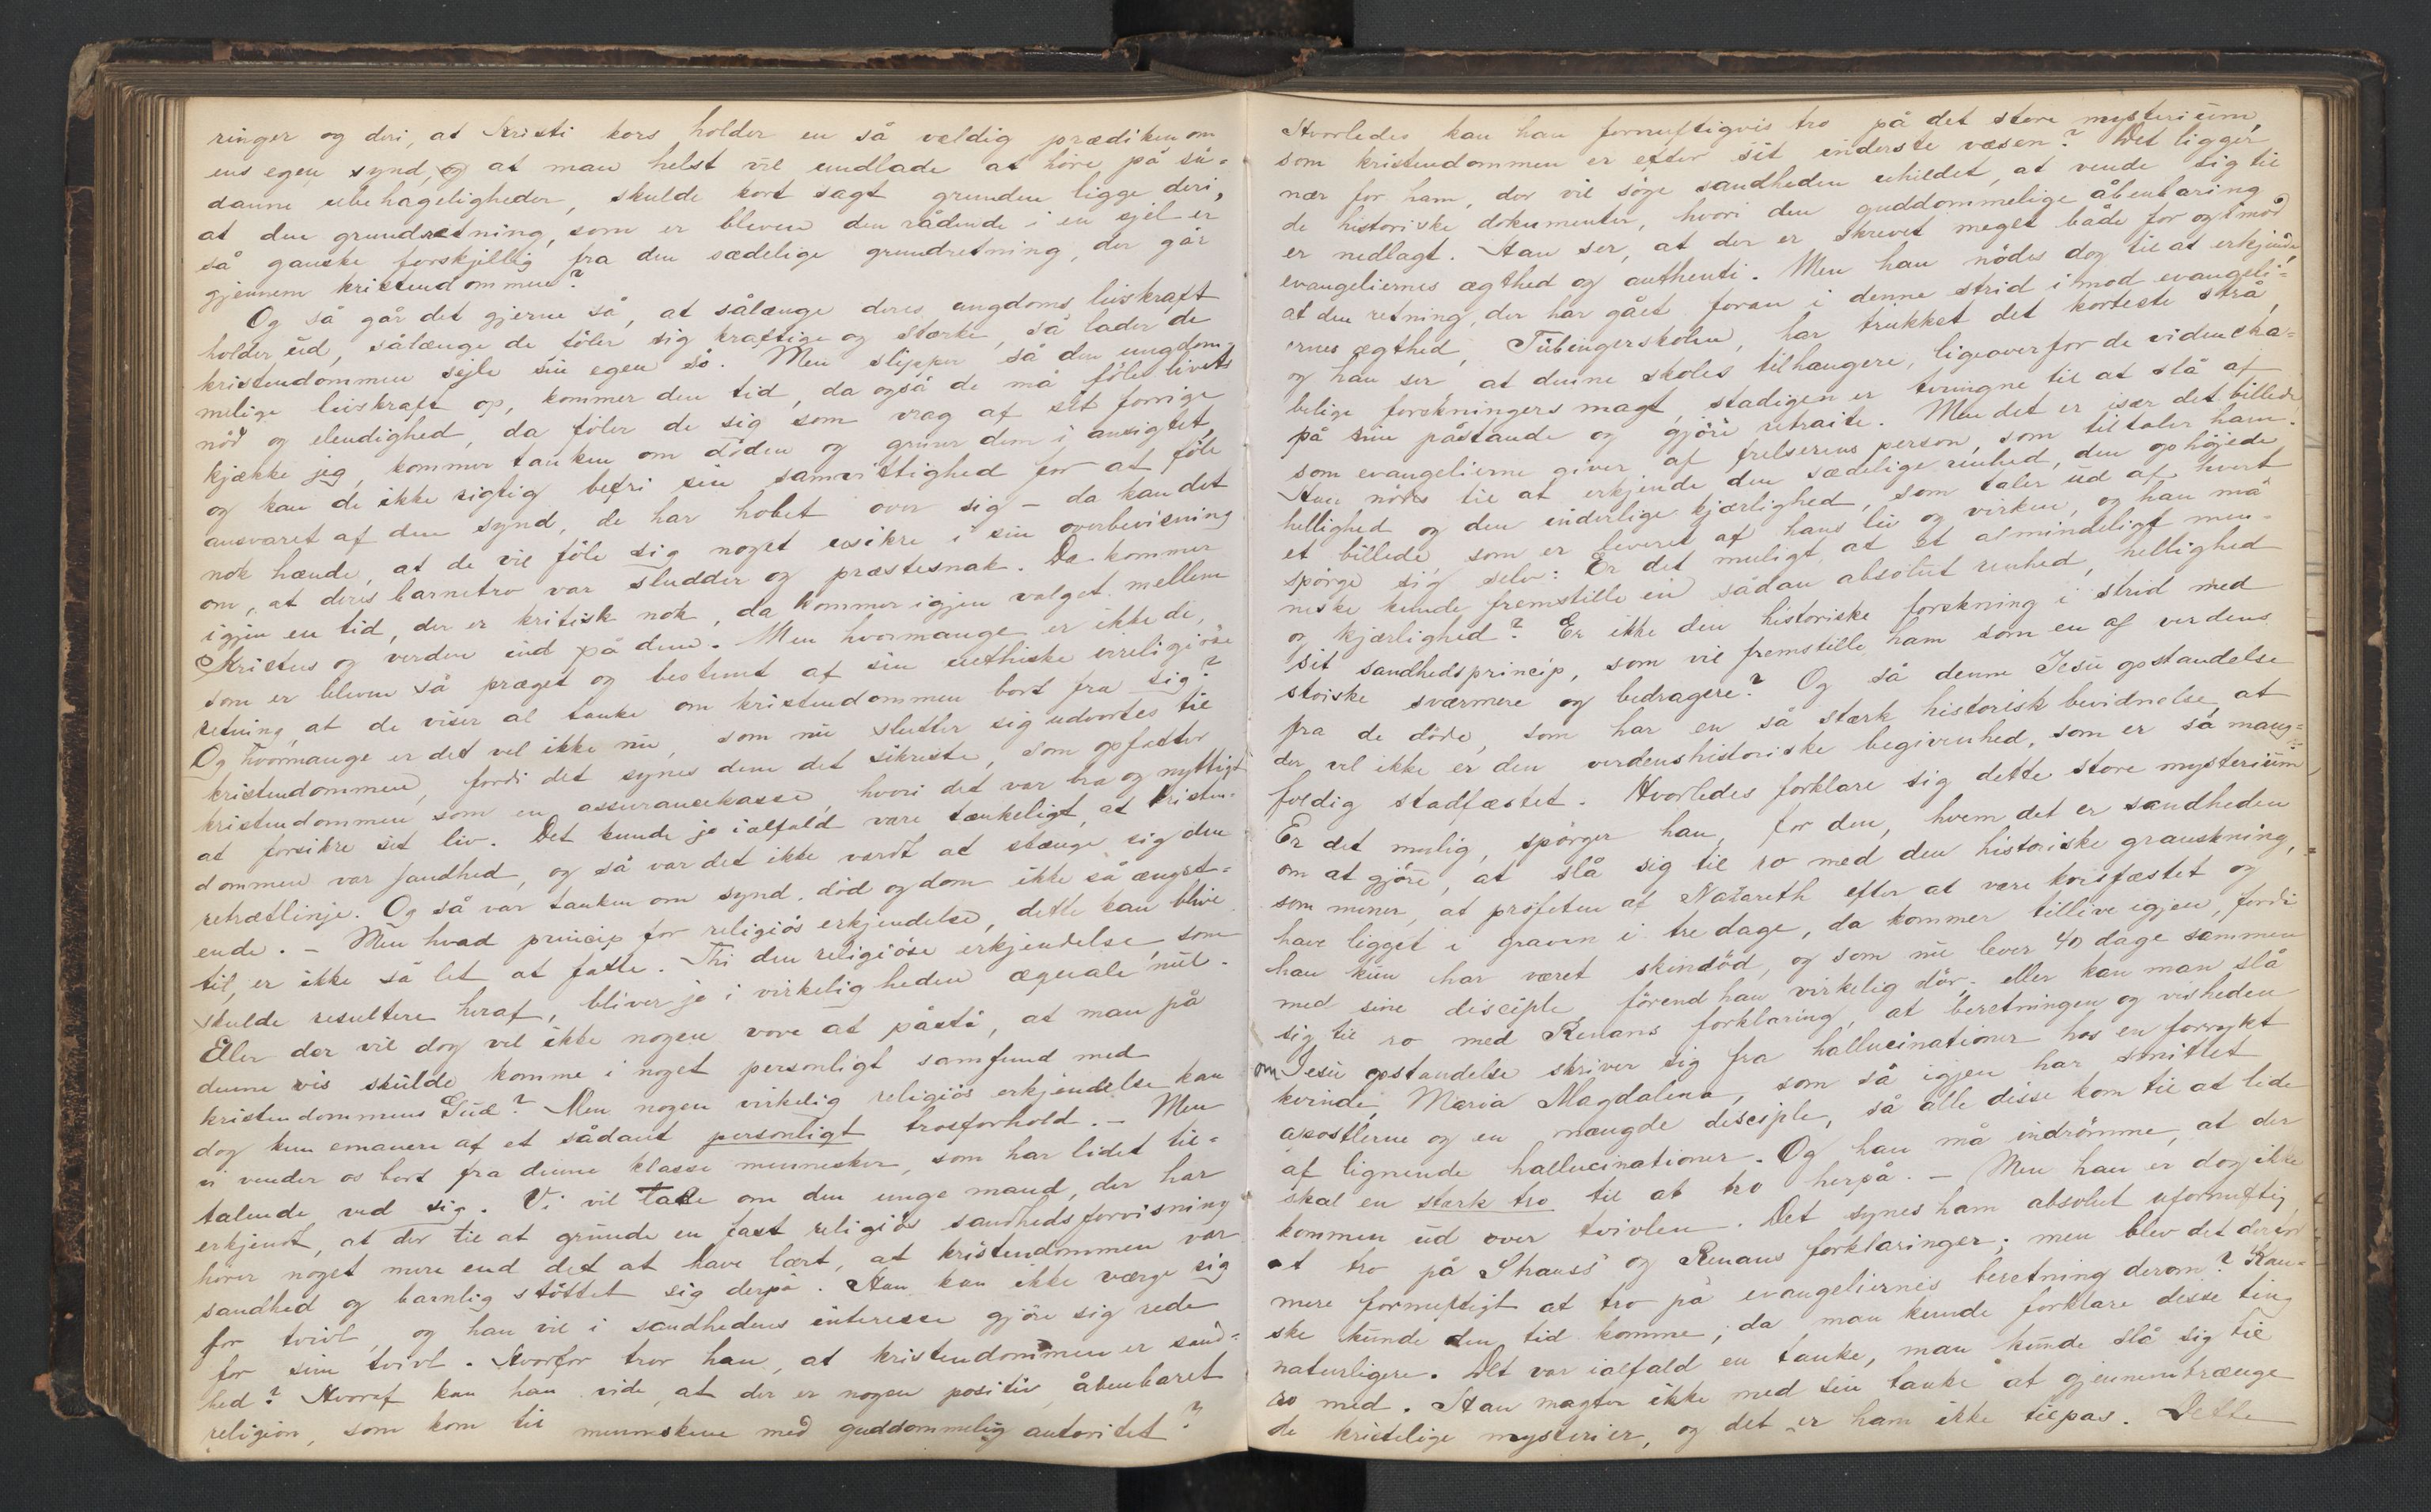 ringer og deri, at Kristi kors holder en så veldig prædiken om
ens egen synd, og at man helst vil undlade at höre på så-
danne ubehageligheder, skulde kort sagt grunden ligge deri,
at den grundretning, som er bleven den rådende i en sjel er
så ganske forskjellig fra den sædelige grundretning, der går
gjennem kristendommen?
Og så går det gjerne så, at sålænge deres ungdoms livskraft
holder ud, sålænge de föler sig kraftige og stærke, så lader de
kristendommen sejle sin egen sö. Men slipper så den ungdom-
melige livskraft op, kommer den tid, da også de må föle livets
nöd og elendighed, da föler de sig som vrag af sit forrige
kjække jeg, kommer tanken om döden og griner dem i ansigtet,
og kan de ikke rigtig befri sin samvittighed for at föle
ansvaret af den synd, de har hobet over sig – da kan det
nok hænde, at de vil föle sig noget usikre i sin overbevisning
om, at deres barnetro var sludder og præstesnak. Da kommer
igjen en tid, der er kritisk nok, da kommer igjen valget mellem
Kristus og verden ind på dem. Men hvormange er ikke de,
som er bleven så præget og bestemt af sin uethiske irreligiöse
retning, at de viser al tanke om kristendommen bort fra sig?
Og hvormange er det vel ikke nu, som nu slutter sig udvortes til
kristendommen, fordi det synes dem det sikreste, som opfatter
kristendommen som en assurancekasse, hvori det var bra og nyttigt
at forsikre sit liv. Det kunde jo ialfald være tænkeligt, at kristen-
dommen var sandhed, og så var det ikke værdt at stænge sig den
retrætlinje. Og så var tanken om synd, död og dom ikke så ængst-
ende. – Men hvad princip for religiös erkjendelse, dette kan blive
til, er ikke så let at fatte. Thi den religiöse erkjendelse, som
skulde resultere heraf, bliver jo i virkeligheden æquale nul.
Eller der vil dog vel ikke nogen vove at påstå, at man på
denne vis skulde komme i noget personligt samfund med
kristendommens Gud? Men nogen virkelig religiös erkjendelse kan
dog kun emanere af et sådant personligt trosforhold. – Men
vi vender os bort fra denne klasse mennesker, som har lidet til-
talende ved sig. Vi vil tale om den unge mand, der har
erkjendt, at der til at grunde en fast religiös sandhedsforvisning
hörer noget mere end det at have lært, at kristendommen var
sandhed og barnlig stöttet sig derpå. Han kan ikke værge sig
for tvivl, og han vil i sandhedens interesse gjöre sig rede
for sin tvivl. Hvorfor tror han, at kristendommen er sand-
hed? Hvoraf kan han vide, at der er nogen positiv, åbenbaret
religion, som kom til menneskene med guddommelig autoritet?
Hvorledes kan han fornuftigvis tro på det store mysterium,
som kristendommen er efter sit inderste væsen? Det ligger
nær for ham, der vil söge sandheden uhildet, at vende sig til
de historiske dokumenter, hvori den guddommelige åbenbaring
er nedlagt. Han ser, at der er skrevet meget både for og imod
evangeliernes ægthed og authenti. Men han nödes dog til at erkjende,
at den retning, der har gået foran i denne strid imod evangeli-
ernes ægthed, Tübingerskolen, har trukket det korteste strå,
og han ser at denne skoles tilhængere, ligeoverfor de videnska-
belige forskningers magt, stadigen er tvungne til at slå af
på sine påstande og gjöre retraite. Men det er især det billede,
som evangelierne giver af frelserens person, som tiltaler ham.
Han nödes til at erkjende den sædelige renhed, den ophöjede
hellighed og den inderlige kjærlighed, som taler ud af hvert
et billede, som er leveret af hans liv og virken, og han må
spörge sig selv: Er det muligt, at et almindeligt men-
neske kunde fremstille en sådan absolut renhed, hellighed
og kjærlighed? Er ikke den historiske forskning i strid med
sit sandhedsprincip, som vil fremstille ham som en af verdens
störste sværmere og bedragere? Og så denne Jesu opstandelse
fra de döde, som har en så stærk historisk bevidnelse, at
der vel ikke er den verdenshistoriske begivenhed, som er så mang-
foldig stadfæstet. Hvorledes forklare sig dette store mysterium
Er det mulig, spörger han, for den, hvem det er sandheden
om at gjöre, at slå sig til ro med den historiske granskning,
som mener, at profeten af Nazareth efter at være korsfæstet og
have ligget i graven i tre dage, da kommer tillive igjen, fordi
han kun har været skindöd, og som nu lever 40 dage sammen
med sine disciple förend han virkelig dör, eller kan man slå
sig til ro med Renans forklaring, at beretningen og visheden
om Jesu opstandelse skriver sig fra hallucinationer hos en forrykt
kvinde, Maria Magdalena, som så igjen har smittet
apostlerne og en mængde disciple, så alle disse kom til at lide
af lignende hallucinationer. Og han må indrömme, at der
skal en stærk tro til at tro herpå. – Men han er dog ikke
kommen ud over tvivlen. Det synes ham absolut ufornuftig
at tro på Strauss' og Renans forklaringer; men blev det derfor
mere fornuftigt at tro på evangeliernes beretning derom? Kan-
ske kunde den tid komme, da man kunde forklare disse ting
naturligere. Det var ialfald en tanke, man kunde slå sig til
ro med. Han magter ikke med sin tanke at gjennemtrænge
de kristelige mysterier, og det er ham ikke tilpas. Dette